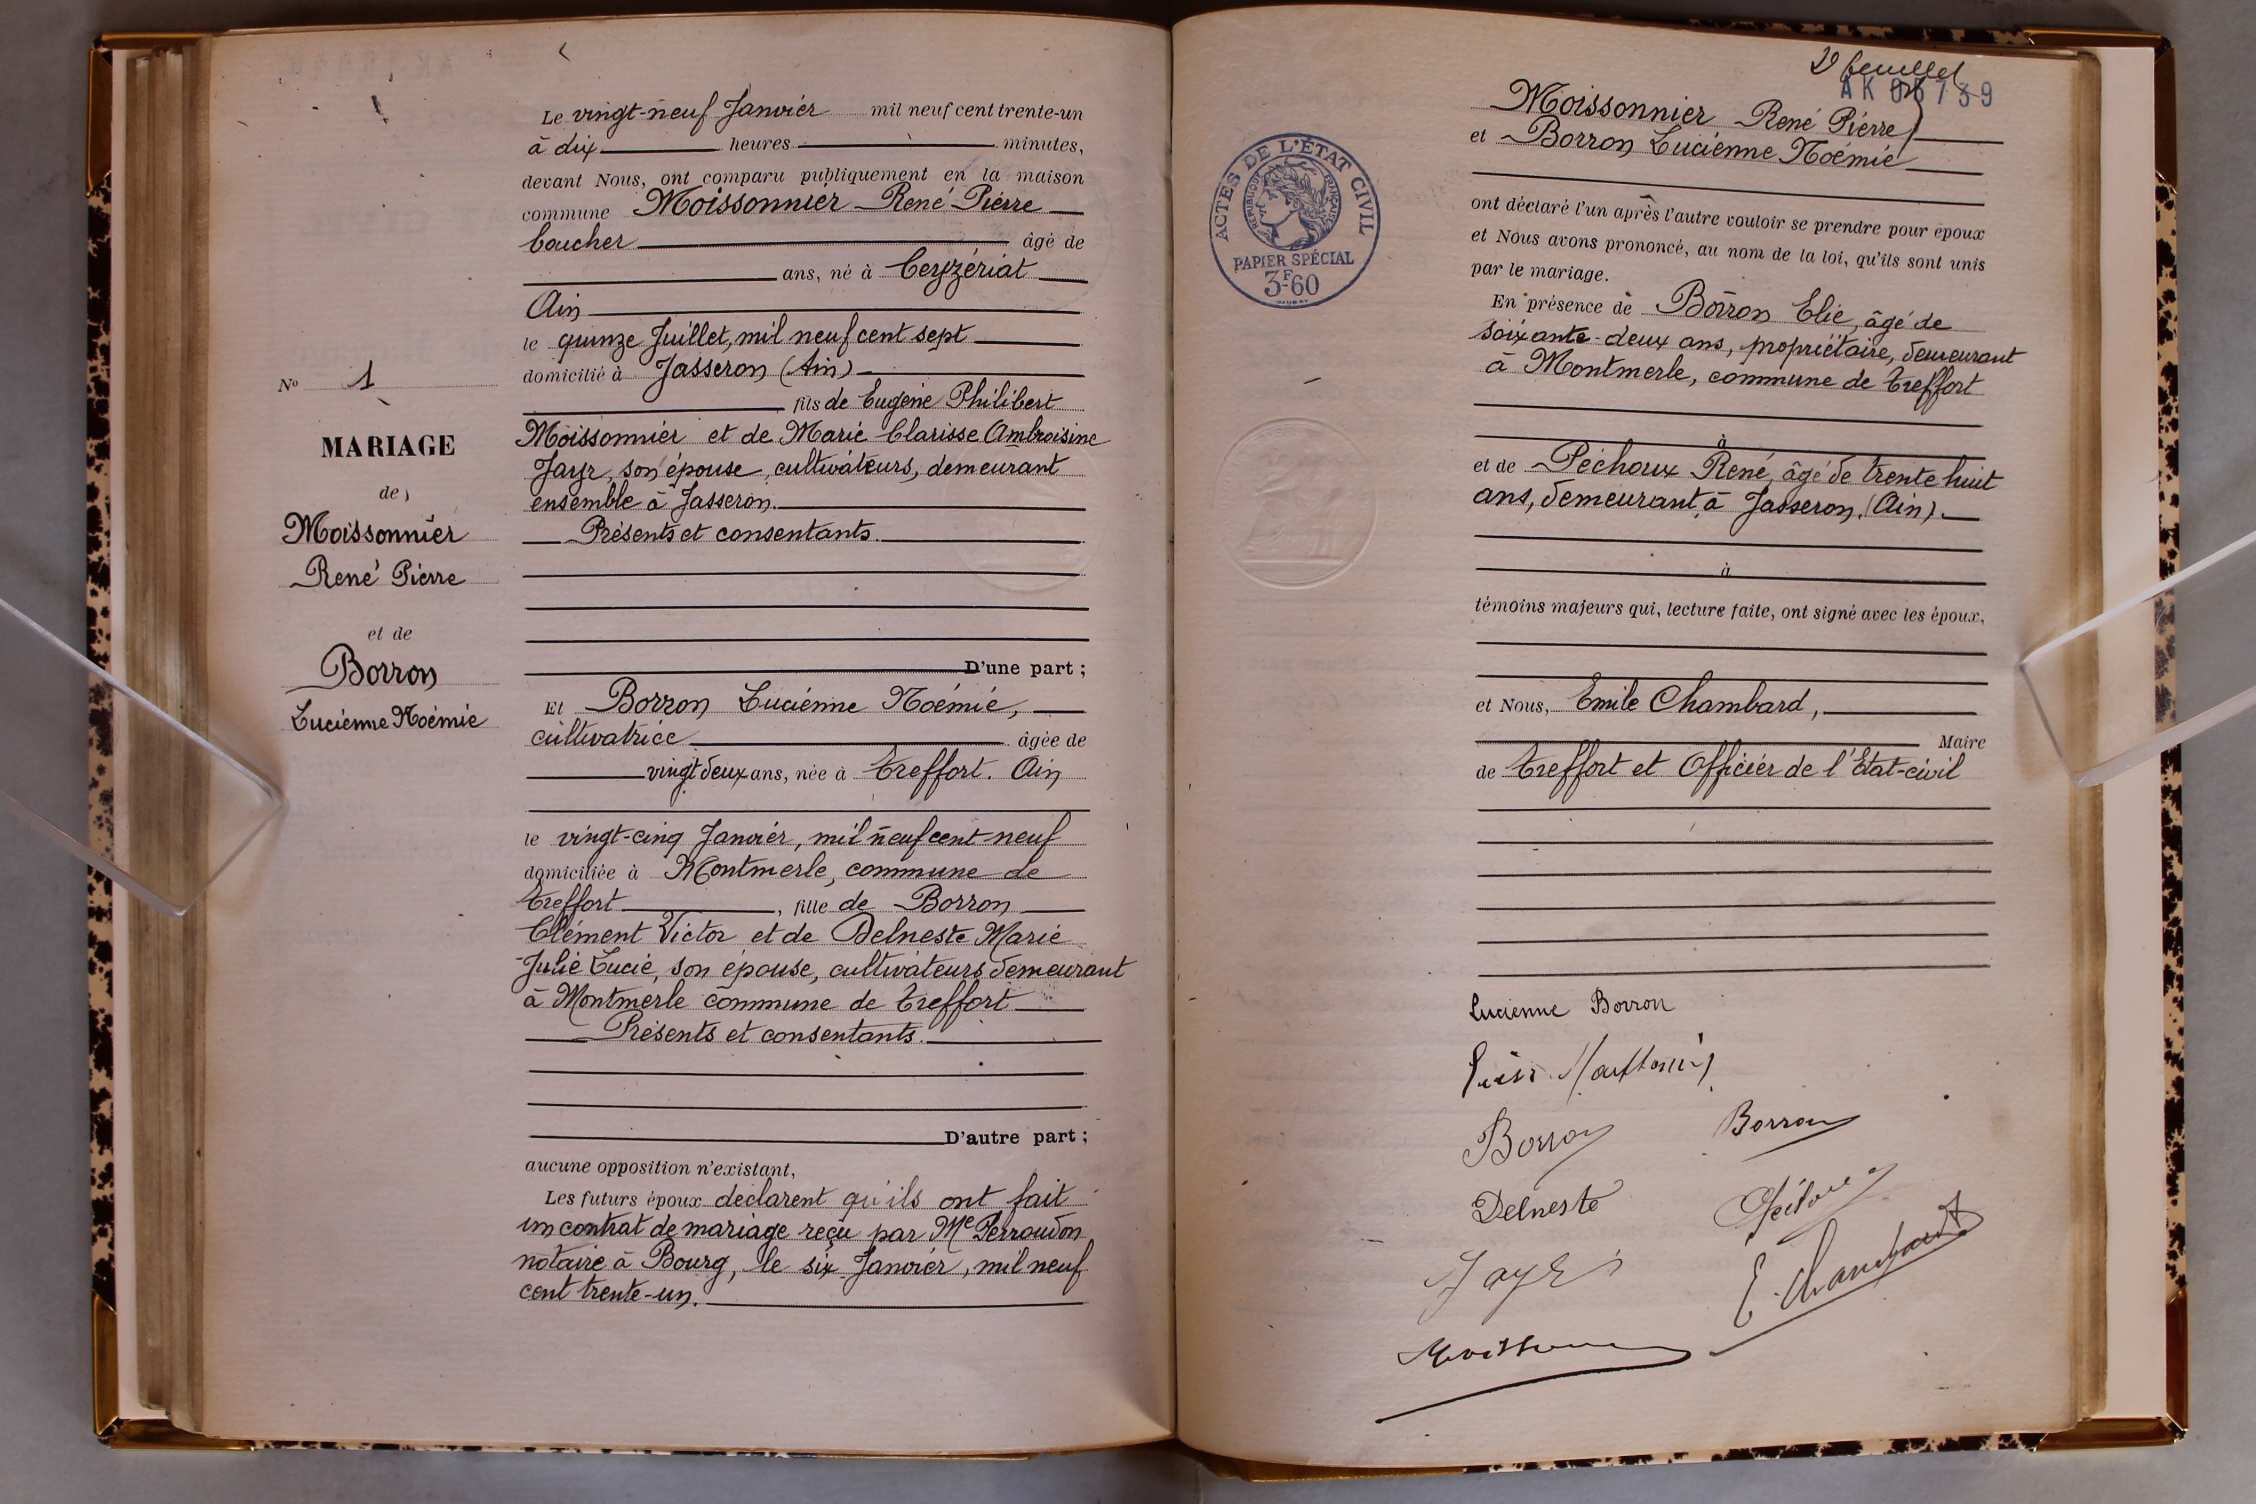 Le vingt-neuf Janvier mil neuf cent trente-un
à dix heures minutes,
devant Nous, ont comparu publiquement en la maison
commune Moissonnier René Pierre
boucher âgé de
ans, né à Ceyzériat
Ain
le quinze Juillet, mil neuf cent sept
domicilié à Jasseron (Ain)
fils de Eugène Philibert
Moissonnier et de Marie Clarisse Ambroisine
Jayr, son épouse, cultivateurs, demeurant
ensemble à Jasseron.
Présents et consentants.
D'une part ;
Nº 1
MARIAGE
de
Moissonnier
René Pierre
et de
Borron
Lucienne Noémie
Et Borron Lucienne Noémie,
cultivatrice âgée de
vingt deux ans, née à Treffort. Ain
le vingt-cinq Janvier, mil neuf cent neuf
domiciliée à Montmerle, commune de
Treffort, fille de Borron
Clément Victor et de Delneste Marie
Julie Lucie, son épouse, cultivateurs demeurant
à Montmerle commune de Treffort
Présents et consentants.
D'autre part ;
aucune opposition n'existant,
Les futurs époux déclarent qu'ils ont fait
un contrat de mariage reçu par Me Perroudon
notaire à Bourg, le six Janvier, mil neuf
cent trente-un.
2 feuillet
AK 739
Moissonnier René Pierre
et Borron Lucienne Noémie
ACTES DE L'ÉTAT CIVIL
RÉPUBLIQUE FRANÇAISE
PAPIER SPÉCIAL
3F60
ont déclaré l'un après l'autre vouloir se prendre pour époux
et Nous avons prononcé, au nom de la loi, qu'ils sont unis
par le mariage.
En présence de Borron Elie, âgé de
soixante-deux ans, propriétaire, demeurant
à Montmerle, commune de Treffort
à
et de Péchoux René, âgé de trente huit
ans, demeurant à Jasseron. (Ain).
à
témoins majeurs qui, lecture faite, ont signé avec les époux,
et Nous, Emile Chambard,
Maire
de Treffort et Officier de l'Etat-civil
Lucienne Borron
Borron Borron
Delneste
Jayr
E. Chambard